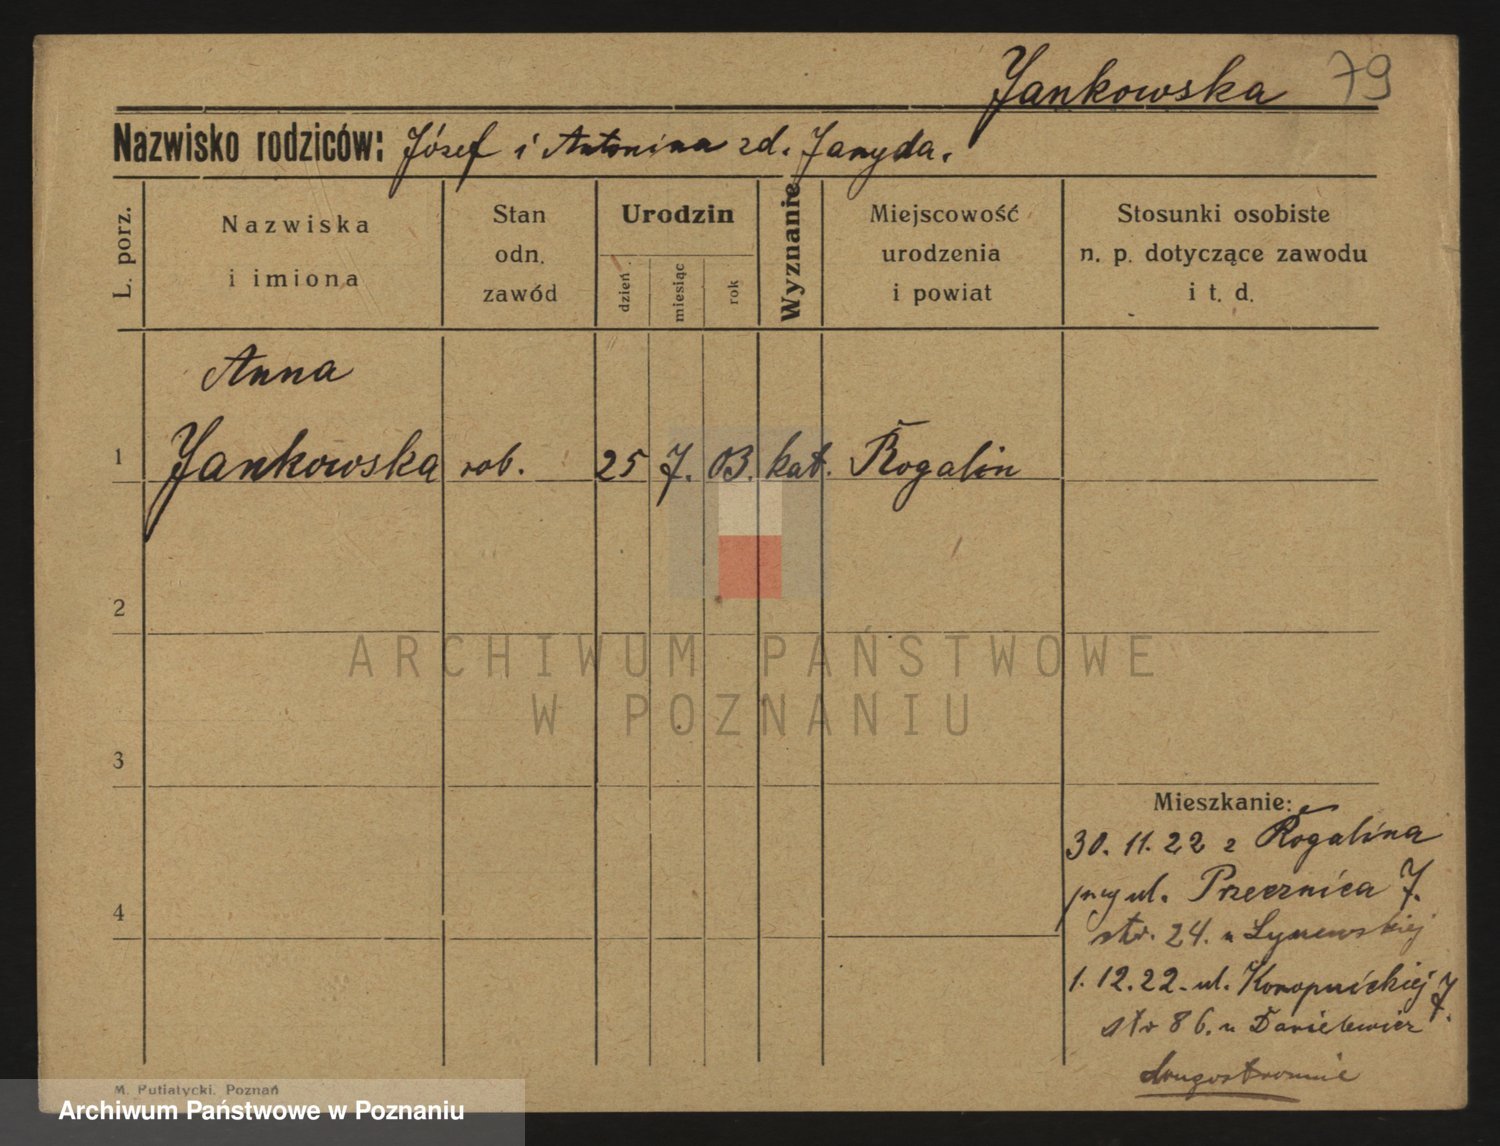 Jankowska 79
Nazwisko rodziców: Józef i Antonina zd. Janyda.
L. porz.
Nazwiska
i imiona
Stan
odn.
zawód
Urodzin
dzień
miesiąc
rok
Wyznanie
Miejscowość
urodzenia
i powiat
Stosunki osobiste
n. p. dotyczące zawodu
i t. d.
Anna
1 Jankowska rob. 25 7. 03. kat. Rogalin
2
ARCHIWUM PAŃSTWOWE
W POZNANIU
3
Mieszkanie:
30. 11. 22 z Rogalina
przy ul. Przecznica 7.
str. 24. u
4
1. 12. 22. ul. Konopnickiej 7.
str 86. u Danielewicz
drugostronnie
M. Putiatycki. Poznań
Archiwum Państwowe w Poznaniu